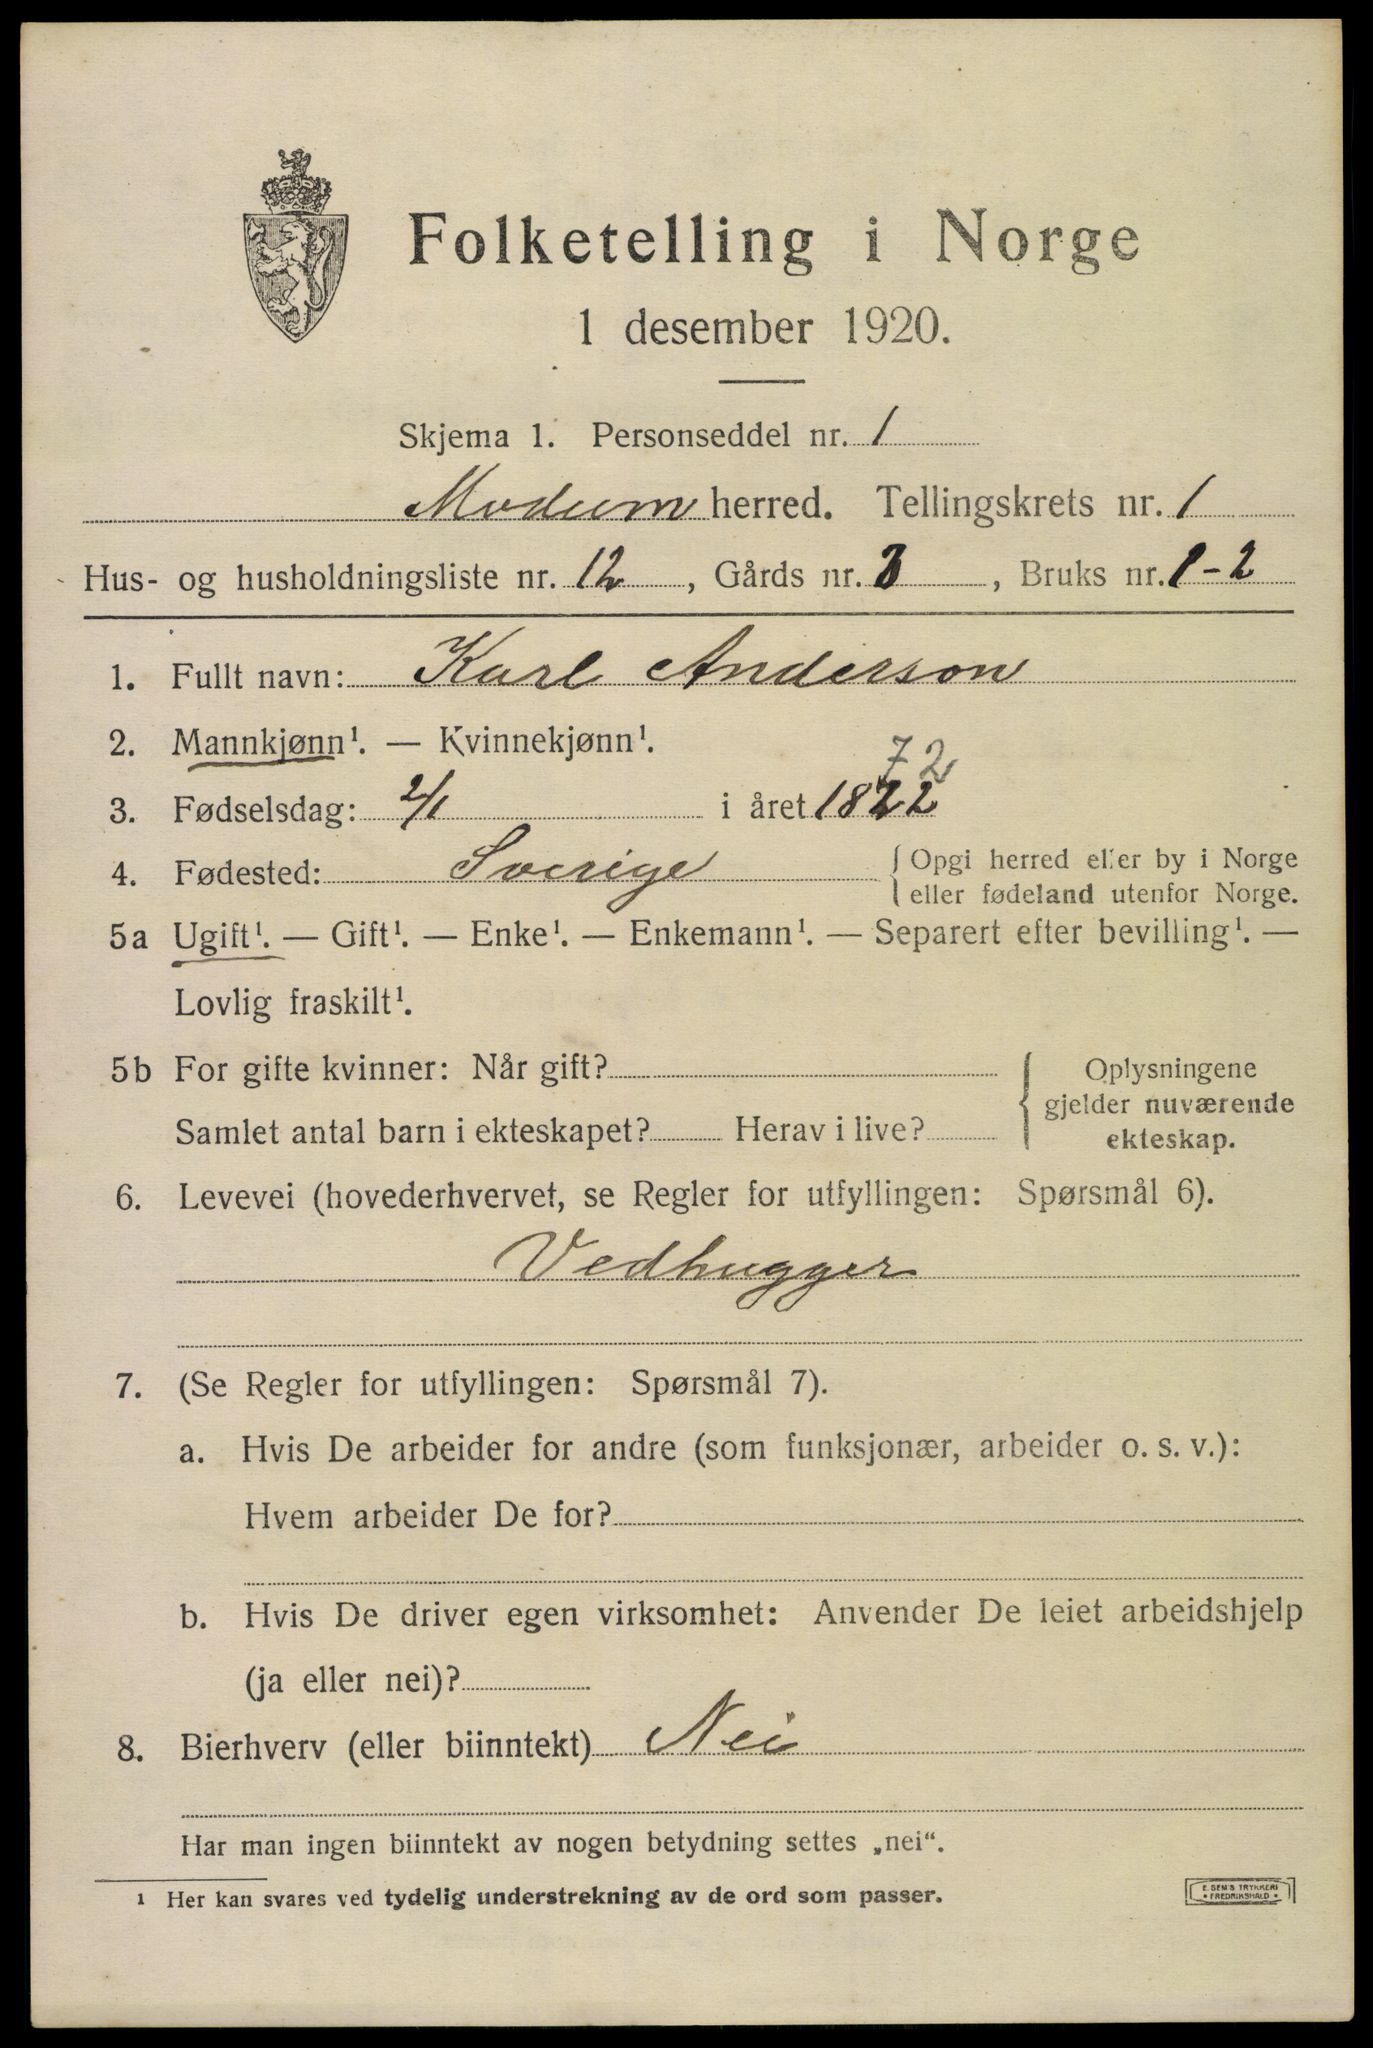 Folketelling i Norge
1 desember 1920.
Skjema 1. Personseddel nr. 1
Modum herred. Tellingskrets nr. 1
Hus- og husholdningsliste nr. 12, Gårds nr. 3, Bruks nr. 1-2
1. Fullt navn: Karl Anderson
2. Mannkjønn¹. — Kvinnekjønn¹.
72
3. Fødselsdag: 2/1 i året 1822
4. Fødested: Sverige { Opgi herred eller by i Norge
eller fødeland utenfor Norge.
5a Ugift¹. — Gift¹. — Enke¹. — Enkemann¹. — Separert efter bevilling¹. —
Lovlig fraskilt¹.
5b For gifte kvinner: Når gift? { Oplysningene
gjelder nuværende
Samlet antal barn i ekteskapet? Herav i live? ekteskap.
6. Levevei (hovederhvervet, se Regler for utfyllingen: Spørsmål 6).
Vedhugger
7. (Se Regler for utfyllingen: Spørsmål 7).
a. Hvis De arbeider for andre (som funksjonær, arbeider o. s. v.):
Hvem arbeider De for?
b. Hvis De driver egen virksomhet: Anvender De leiet arbeidshjelp
(ja eller nei)?
8. Bierhverv (eller biinntekt) Nei
Har man ingen biinntekt av nogen betydning settes „nei“.
¹ Her kan svares ved tydelig understrekning av de ord som passer.
E. SEM'S TRYKKERI
• FREDRIKSHALD •